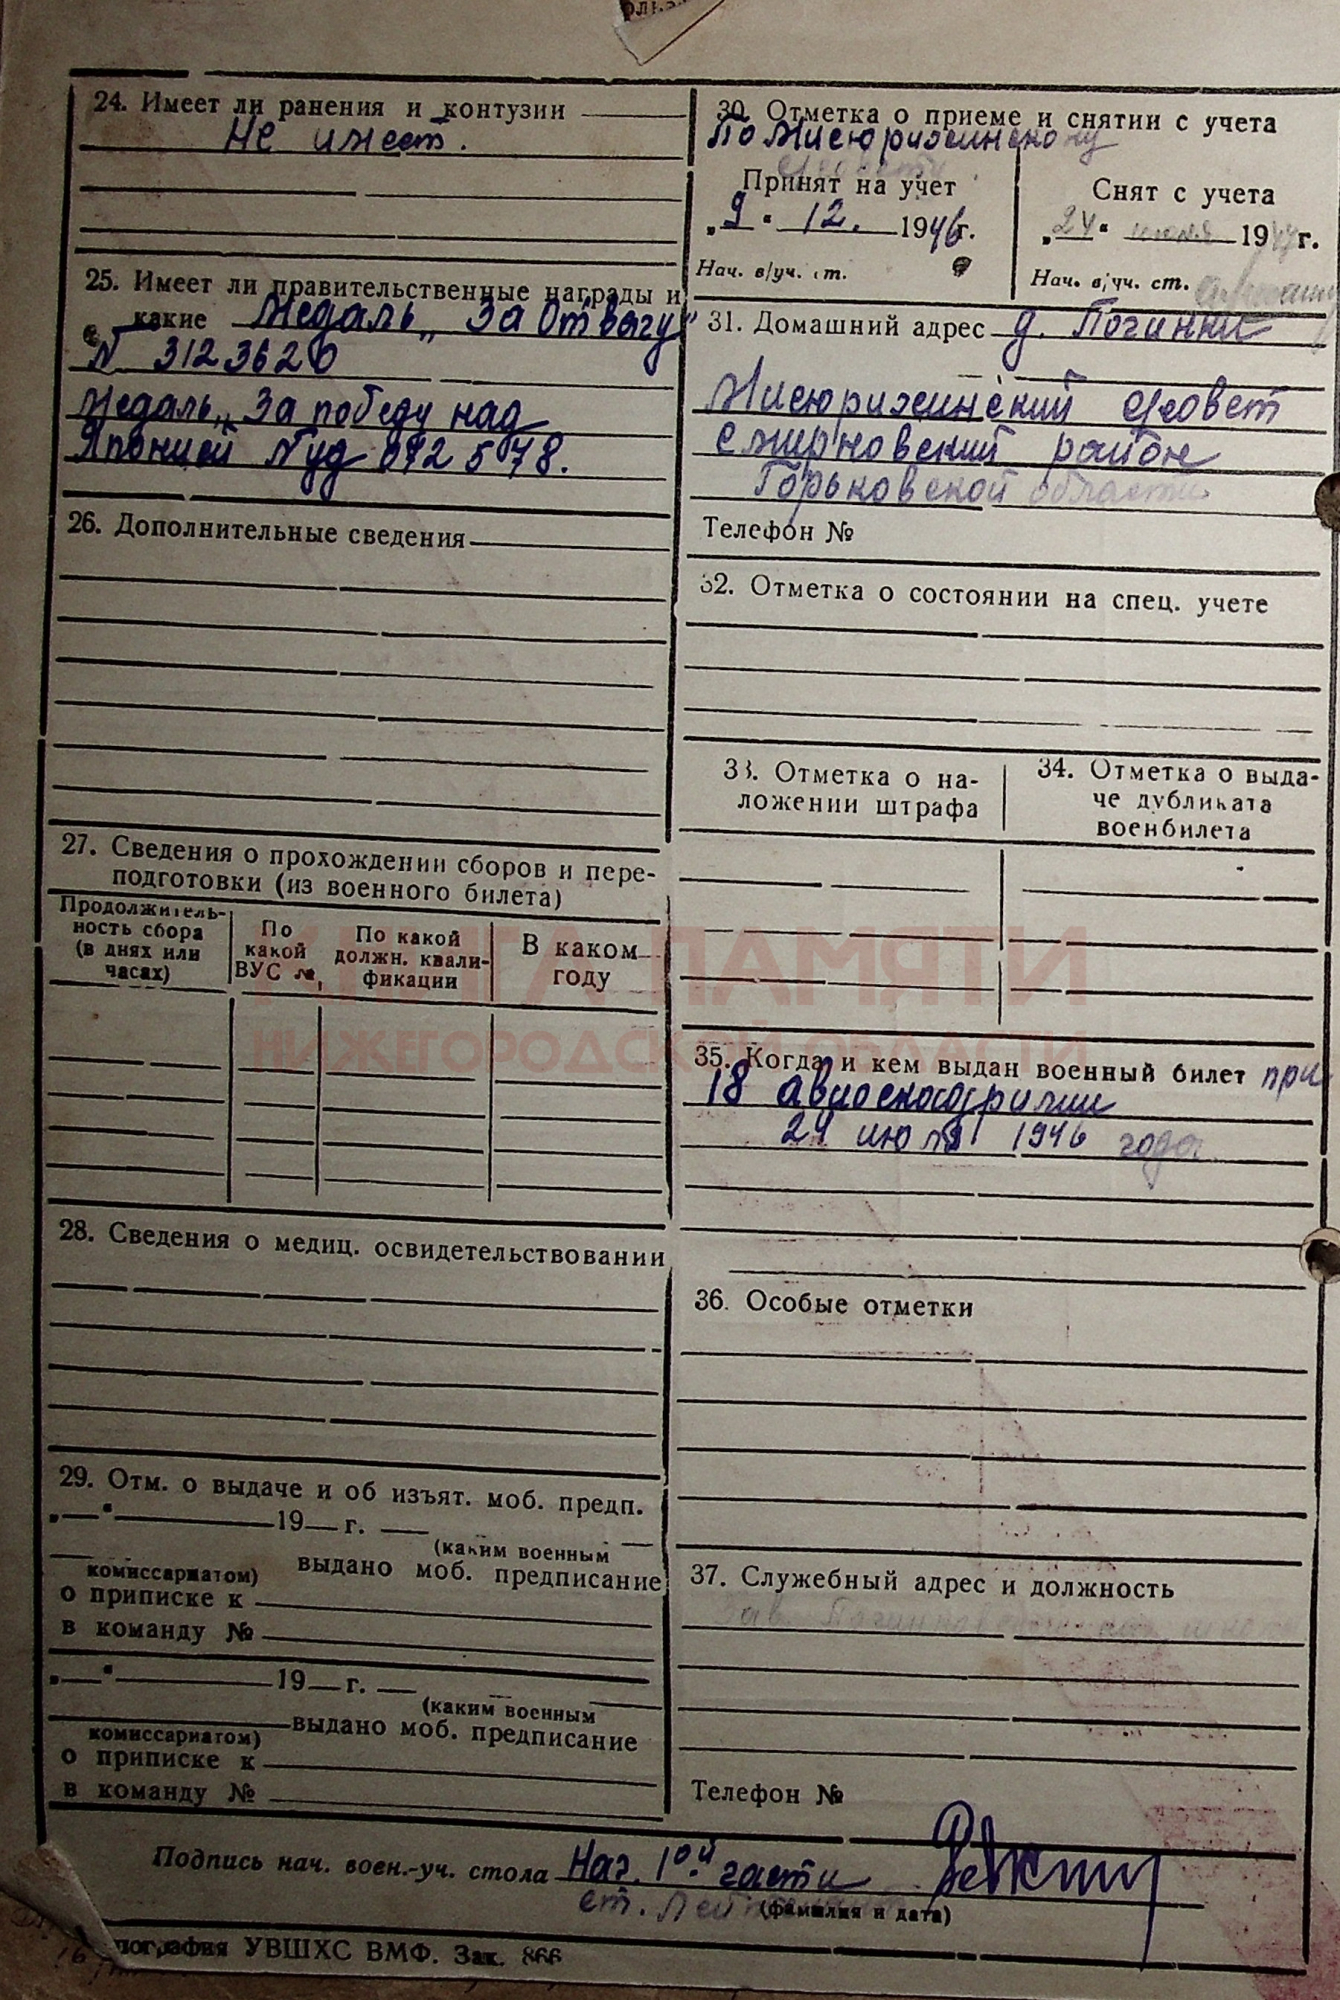 24. Имеет ли ранения и контузии
Не имеет.
25. Имеет ли правительственные награды и
какие Медаль „За отвагу"
№ 3123620
Медаль „За победу над
Японией" № уд 072578.
26. Дополнительные сведения
27. Сведения о прохождении сборов и пере-
подготовки (из военного билета)
Продолжитель-
ность сбора
(в днях или
часах)
По
какой
ВУС №
По какой
должн. квали-
фикации
В каком
году
28. Сведения о медиц. освидетельствовании
29. Отм. о выдаче и об изъят. моб. предп.
„ " 19 г.
(каким военным
комиссариатом) выдано моб. предписание
о приписке к
в команду №
„ " 19 г.
(каким военным
комиссариатом) выдано моб. предписание
о приписке к
в команду №
30. Отметка о приеме и снятии с учета
По Мисюрихинскому
с/совету
Принят на учет
„9" 12. 1946г.
Нач. в/уч. ст.
Снят с учета
„24" июня 1947г.
Нач. в/уч. ст.
31. Домашний адрес д. Починки
Мисюрихинский с/совет
Смирновский район
Горьковской области
Телефон №
32. Отметка о состоянии на спец. учете
33. Отметка о на-
ложении штрафа
34. Отметка о выда-
че дубликата
военбилета
КНИГА ПАМЯТИ
НИЖЕГОРОДСКОЙ ОБЛАСТИ
35. Когда и кем выдан военный билет при
18 авиоэскадрилии
24 июля 1946 года
36. Особые отметки
37. Служебный адрес и должность
Зав. Починковской школы
Телефон №
Подпись нач. воен.-уч. стола Нач. 1ой части
ст. Лейтенант
(фамилия и дата)
пография УВШХС ВМФ. Зак. 866